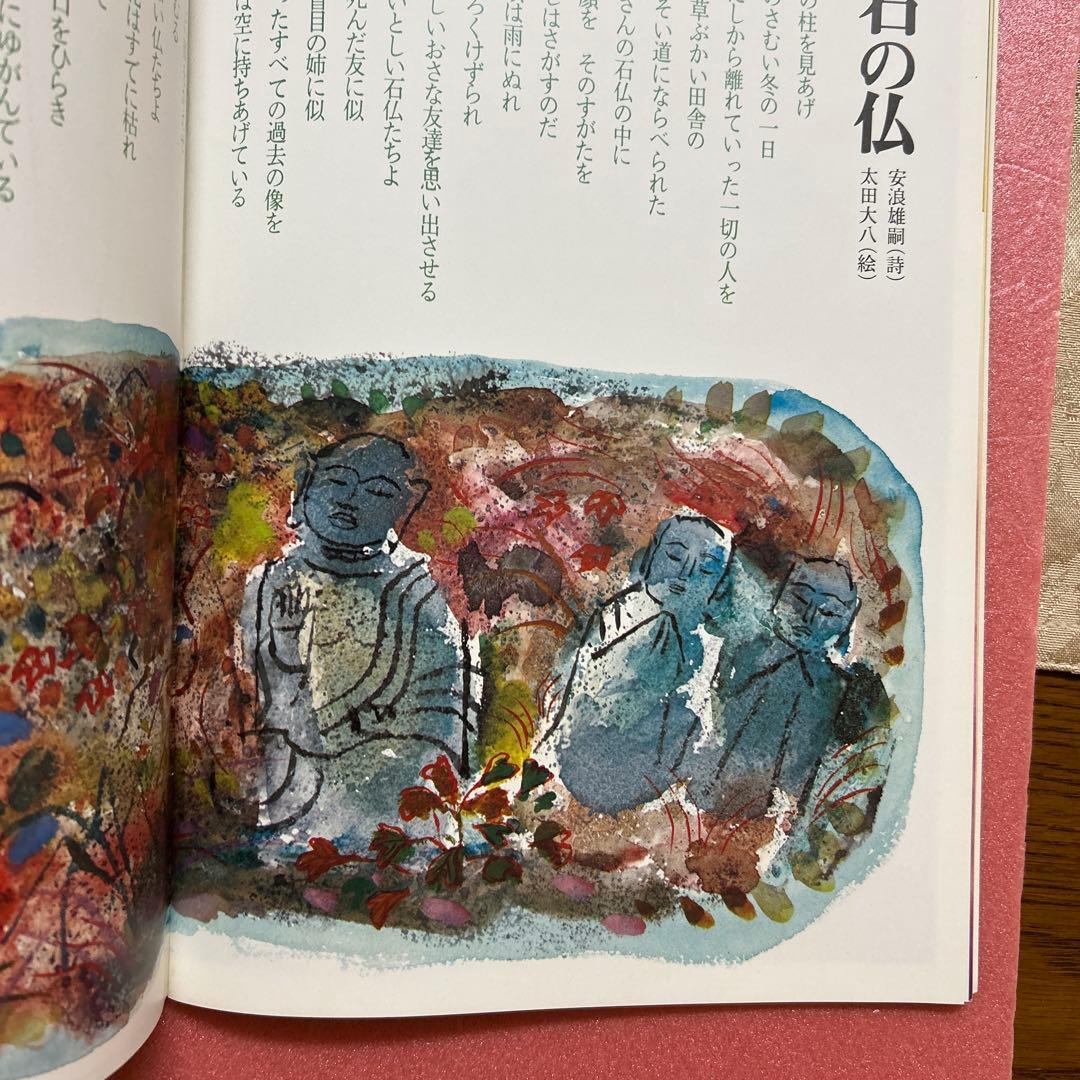 石の仏
安浪雄嗣(詩)
太田大八(絵)
の柱を見あげ
のさむい冬の一日
にしから離れていった一切の人を
草ぶかい田舎の
そい道にならべられた
さんの石仏の中に
顔を　そのすがたを
しはさがすのだ
は雨にぬれ
ろくけずられ
しいおさな友達を思い出させる
いとしい石仏たちよ
死んだ友に似
盲目の姉に似
ったすべての過去の像を
は空に持ちあげている
い仏たちよ
はすでに枯れ
て
目をひらき
にゆがんでいる